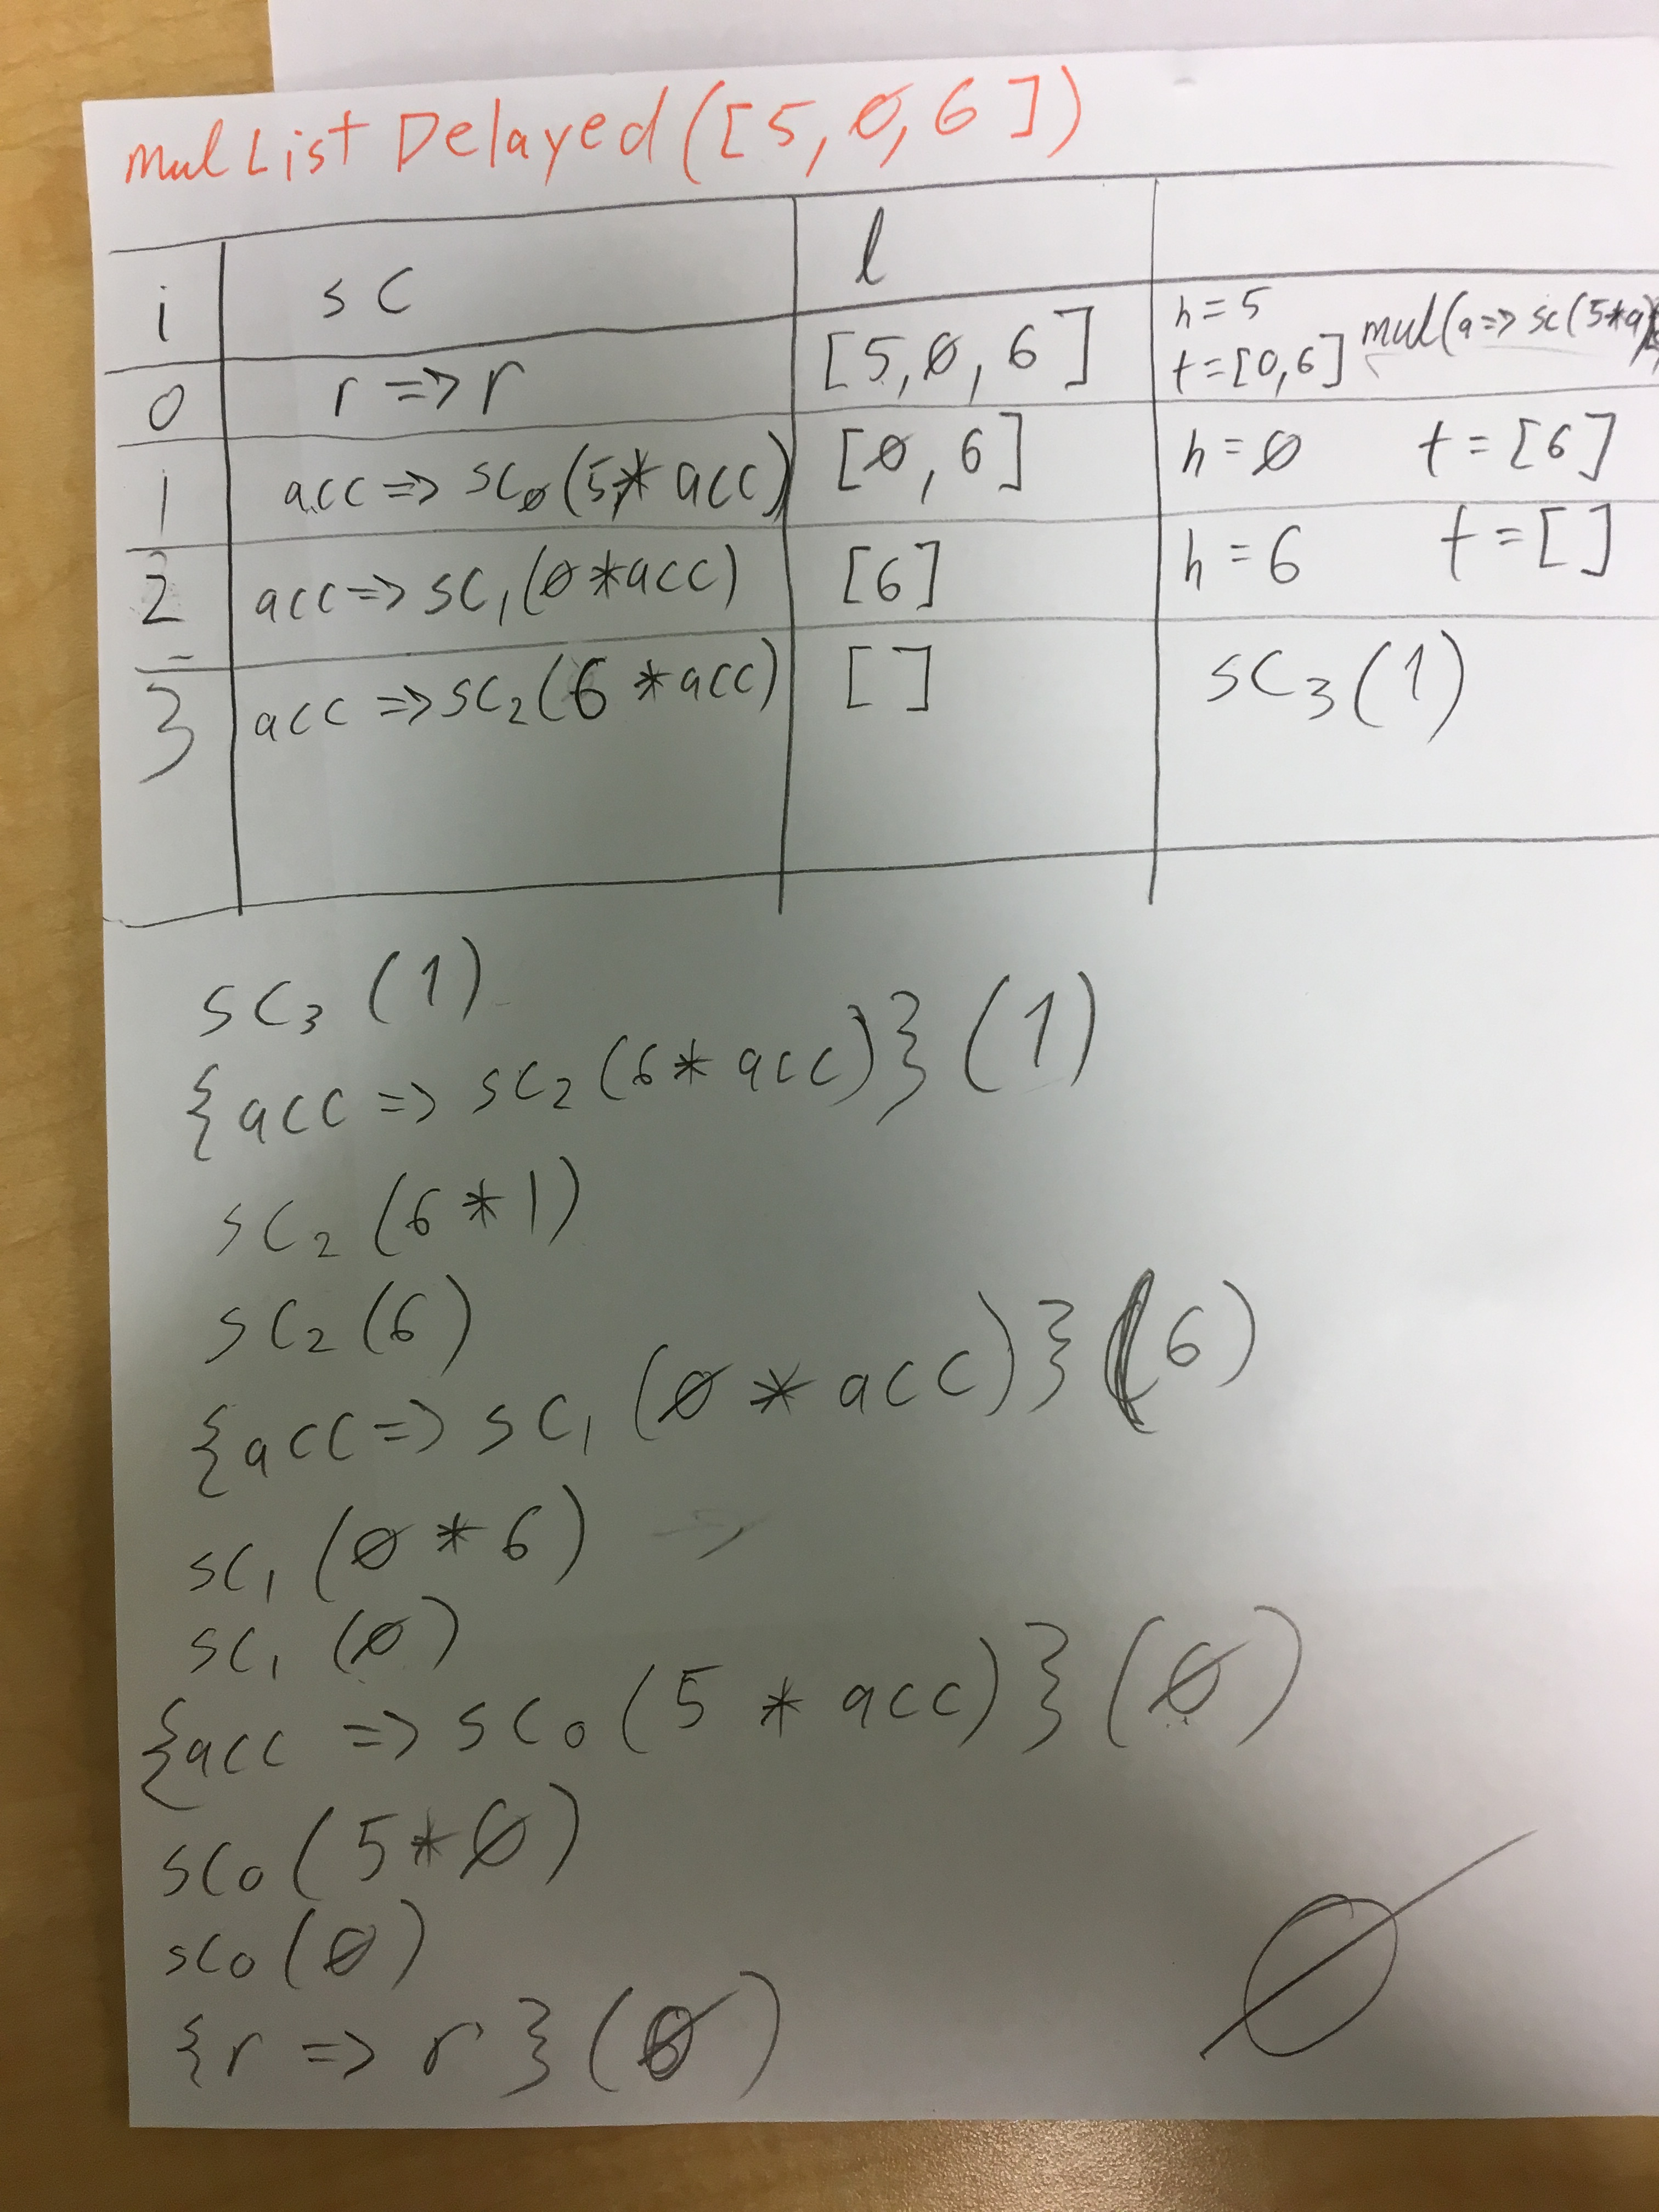 mulListDelayed([5,0,6])
i sc l
0 r => r [5,0,6] h=5 t=[0,6] mul(a=> sc(5*a)
1 acc => sc0(5* acc) [0,6] h=0 t=[6]
2 acc => sc1(0*acc) [6] h=6 t=[]
3 acc => sc2(6 *acc) [] sc3(1)
sc3(1)
{acc => sc2(6* acc)}(1)
sc2(6*1)
sc2(6)
{acc => sc1(0 * acc)}(6)
sc1(0*6)
sc1(0)
{acc => sc0(5 * acc)}(0)
sc0(5*0)
sc0(0)
{r => r}(0)
0